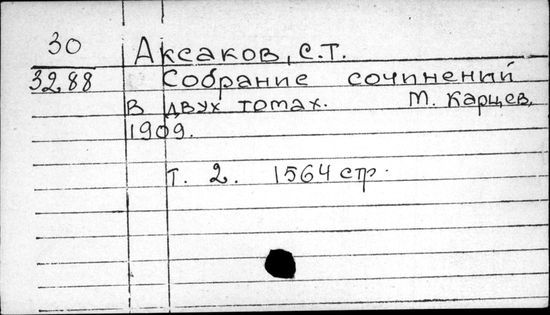 30 Аксаков, С.Т.
3288 Собрание сочинений
в двух томах. М. Карцев,
1909.
т. 2. 1564 стр.